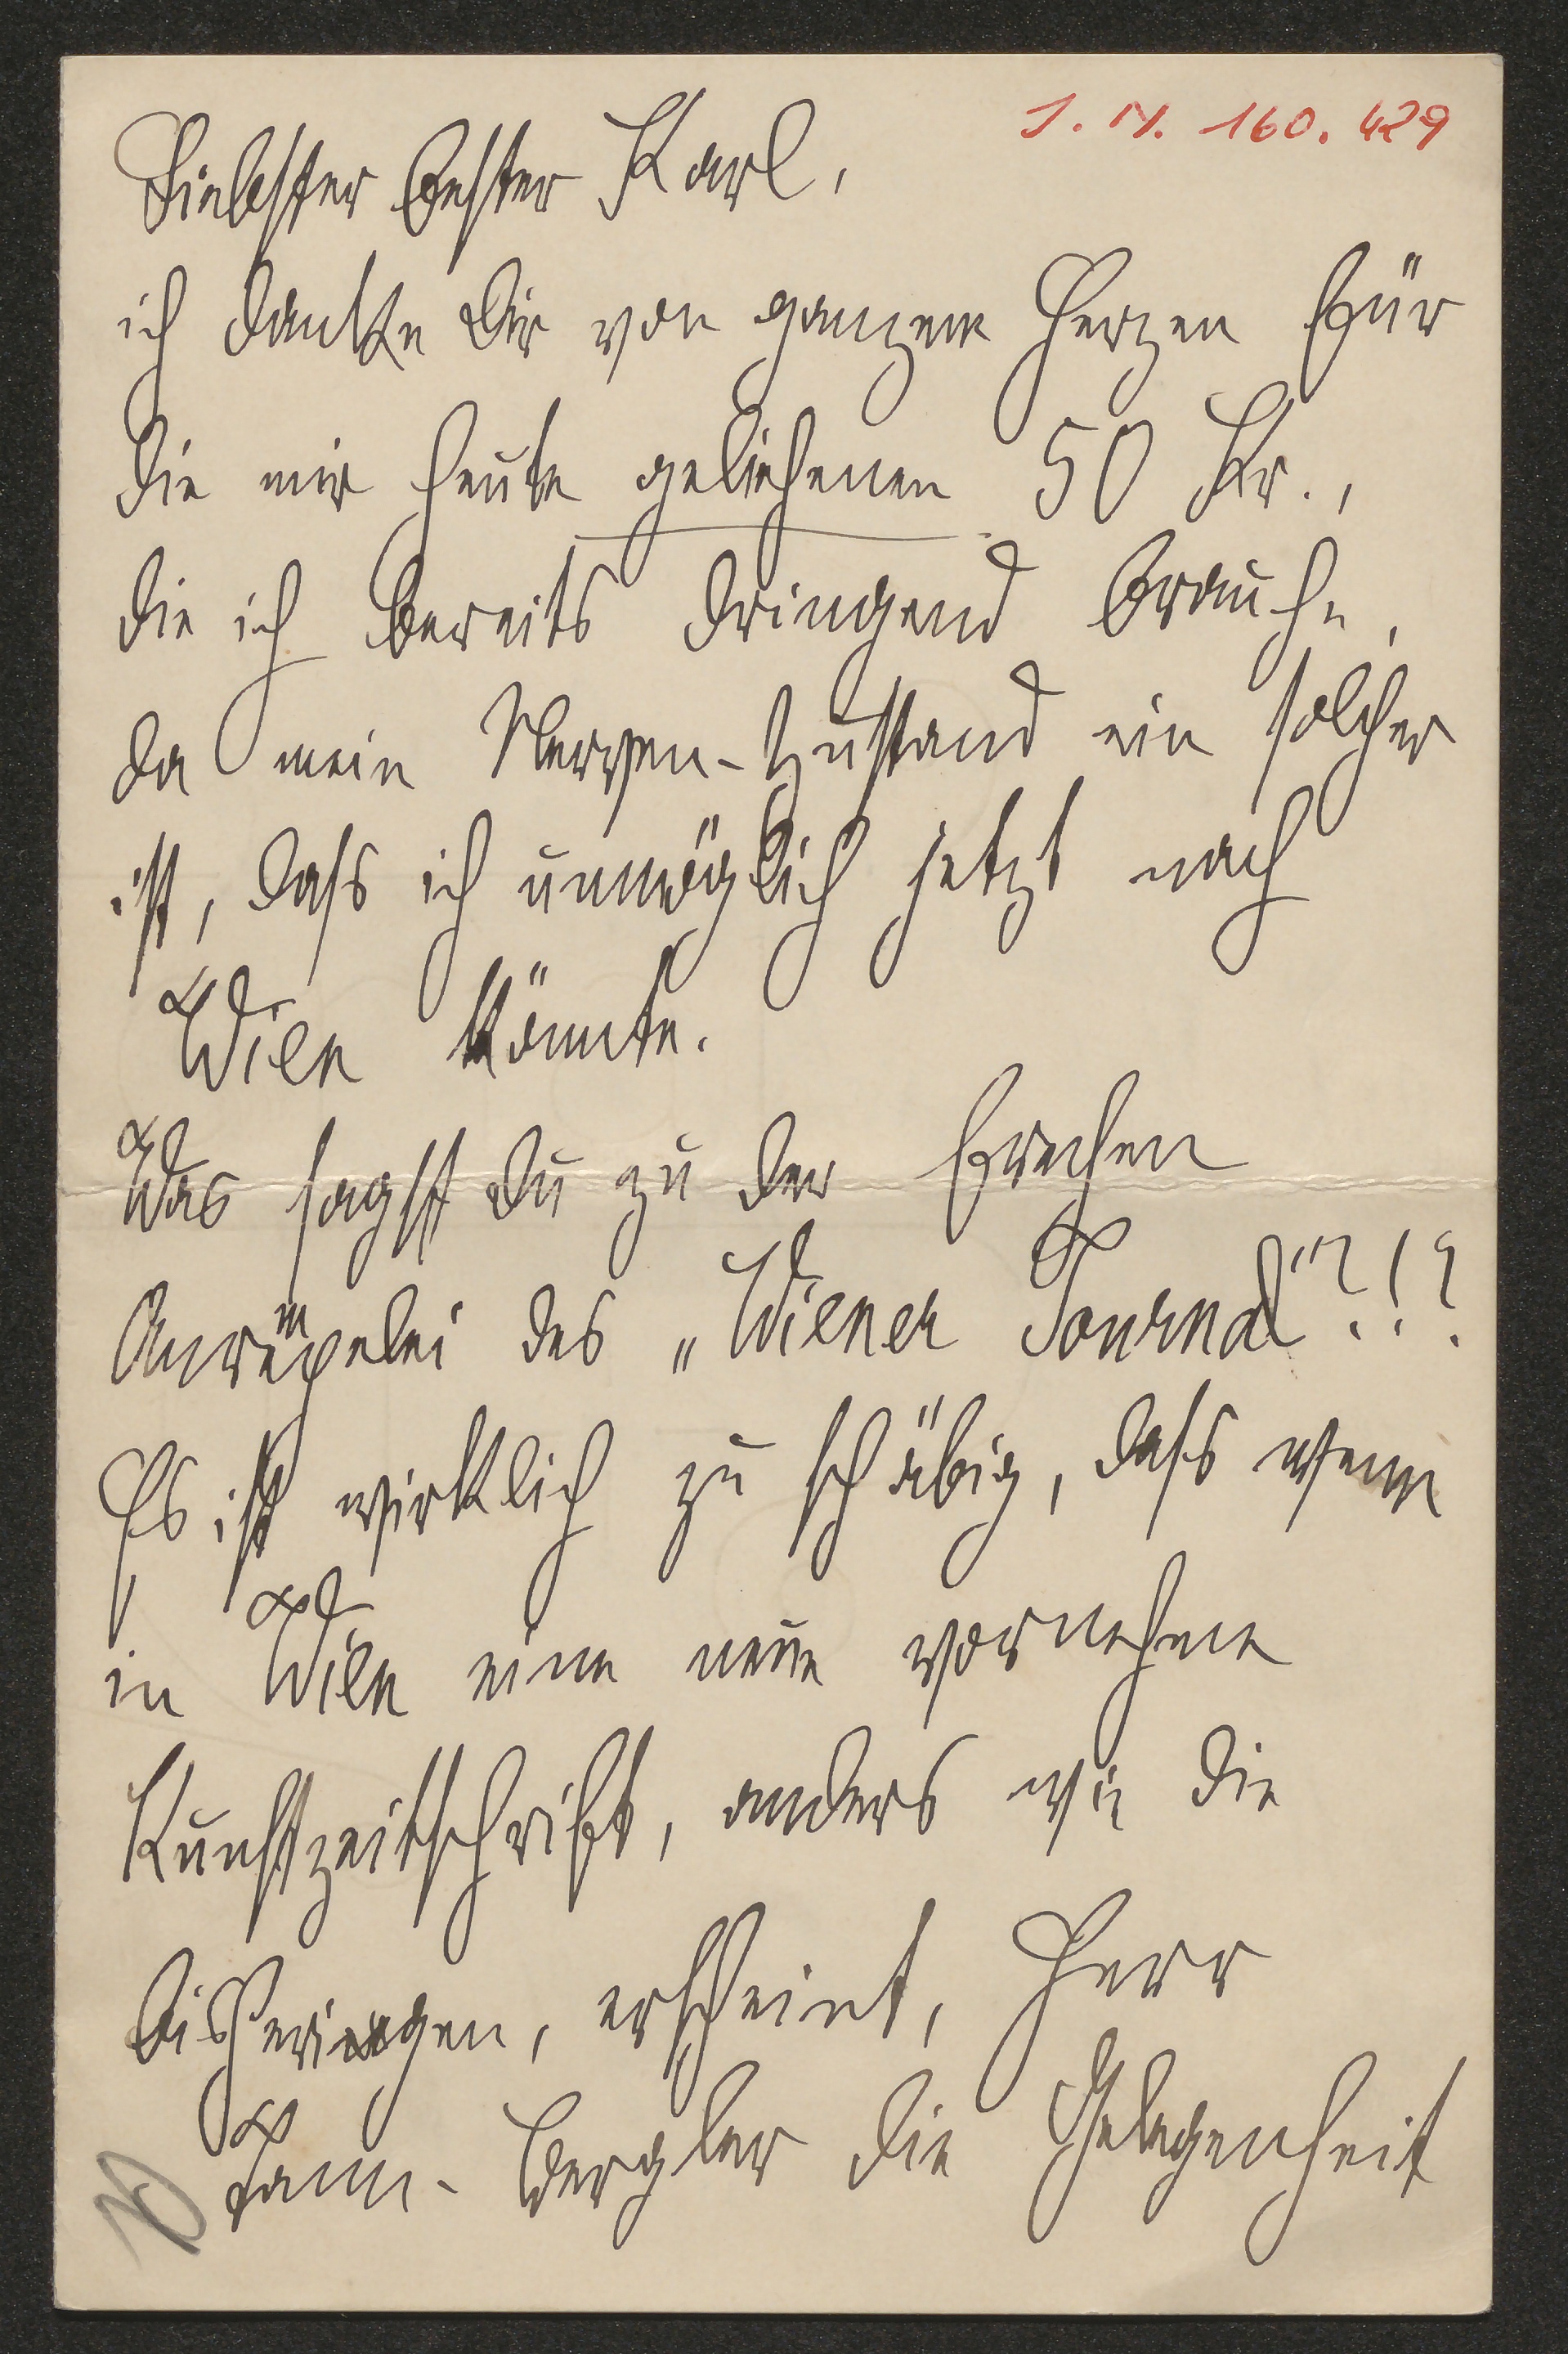 J. N. 160.429
Liebster bester Karl,
ich danke Dir von ganzem Herzen für
die mir heute geliehenen 50 Kr.,
die ich bereits dringend brauche,
da mein Nerven-Zustand ein solcher
ist, dass ich unmöglich jetzt nach
Wien könnte.
Was sagst Du zu der frechen
Anrempelei des „Wiener Journal"?!?
Es ist wirklich zu schäbig, dass wenn
in Wien eine neue vornehme
Kunstzeitschrift, anders wie die
bisherigen, erscheint, Herr
Tann-Bergler die Gelegenheit